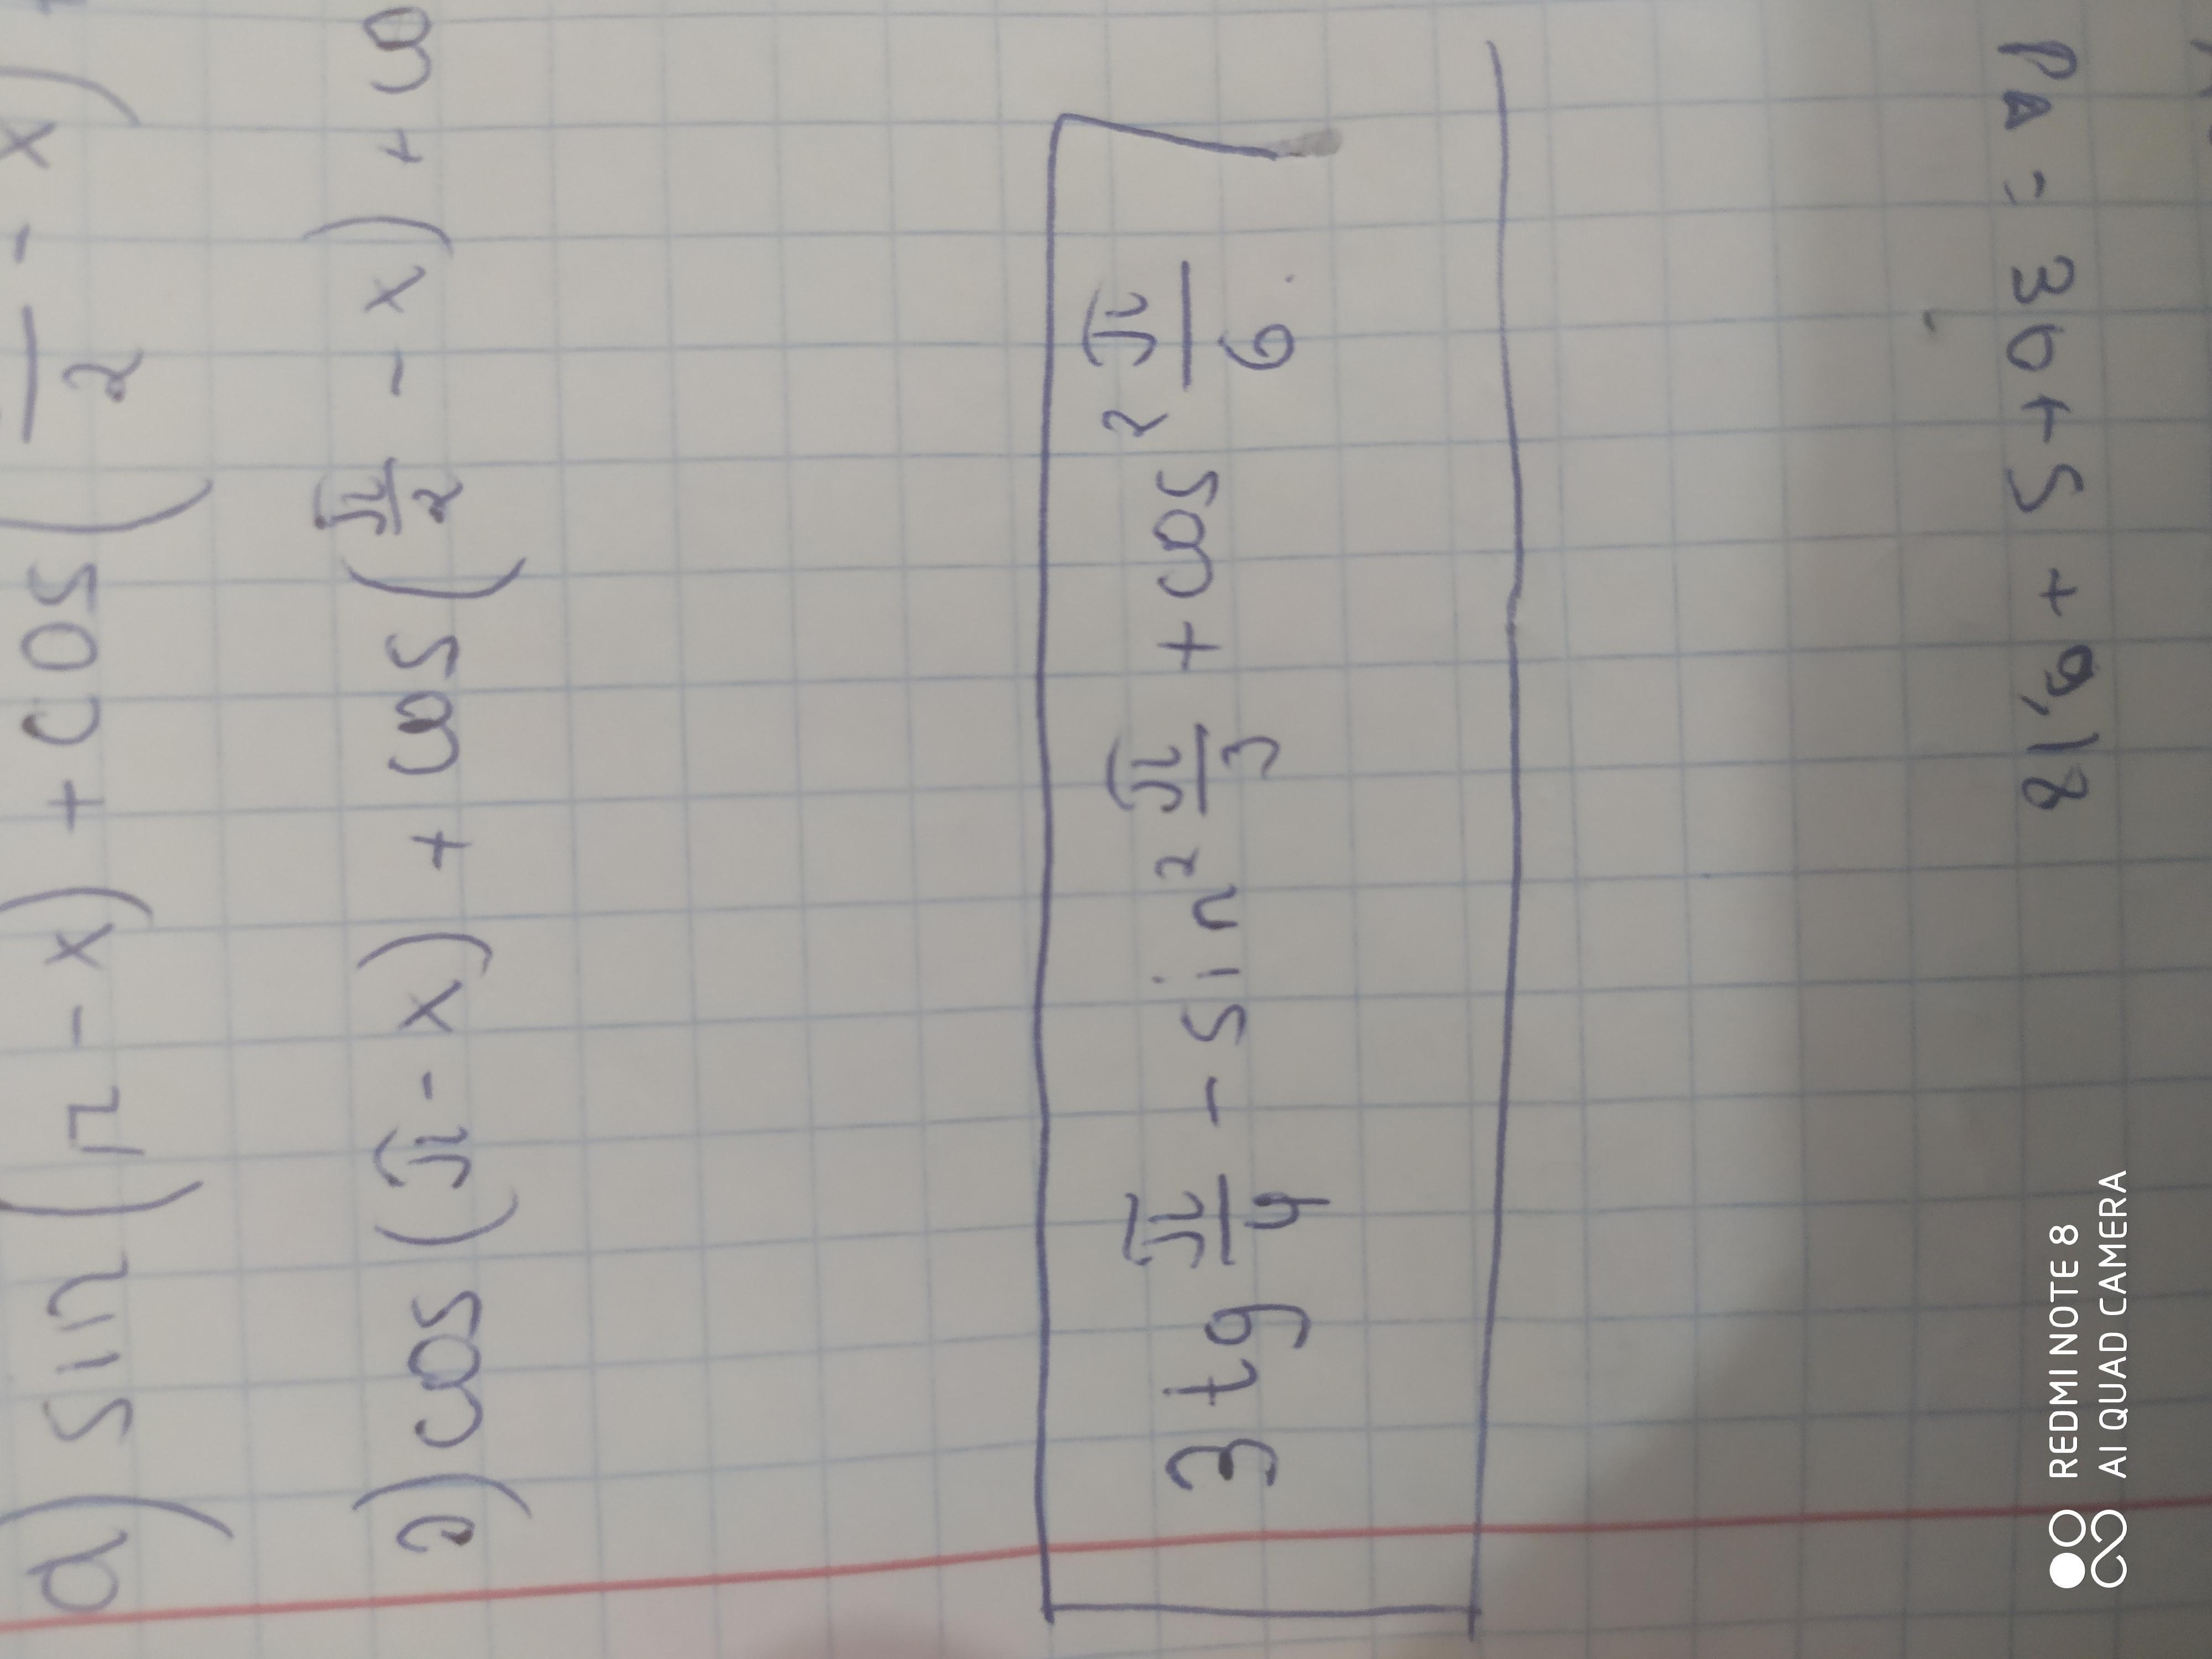 a) sin(π - x) + cos(π/2 - x) +
2) cos(π - x) + cos(π/2 - x) + co
3 tg π/4 - sin² π/3 + cos² π/6
PΔ = 36+5+9,18
REDMI NOTE 8
AI QUAD CAMERA